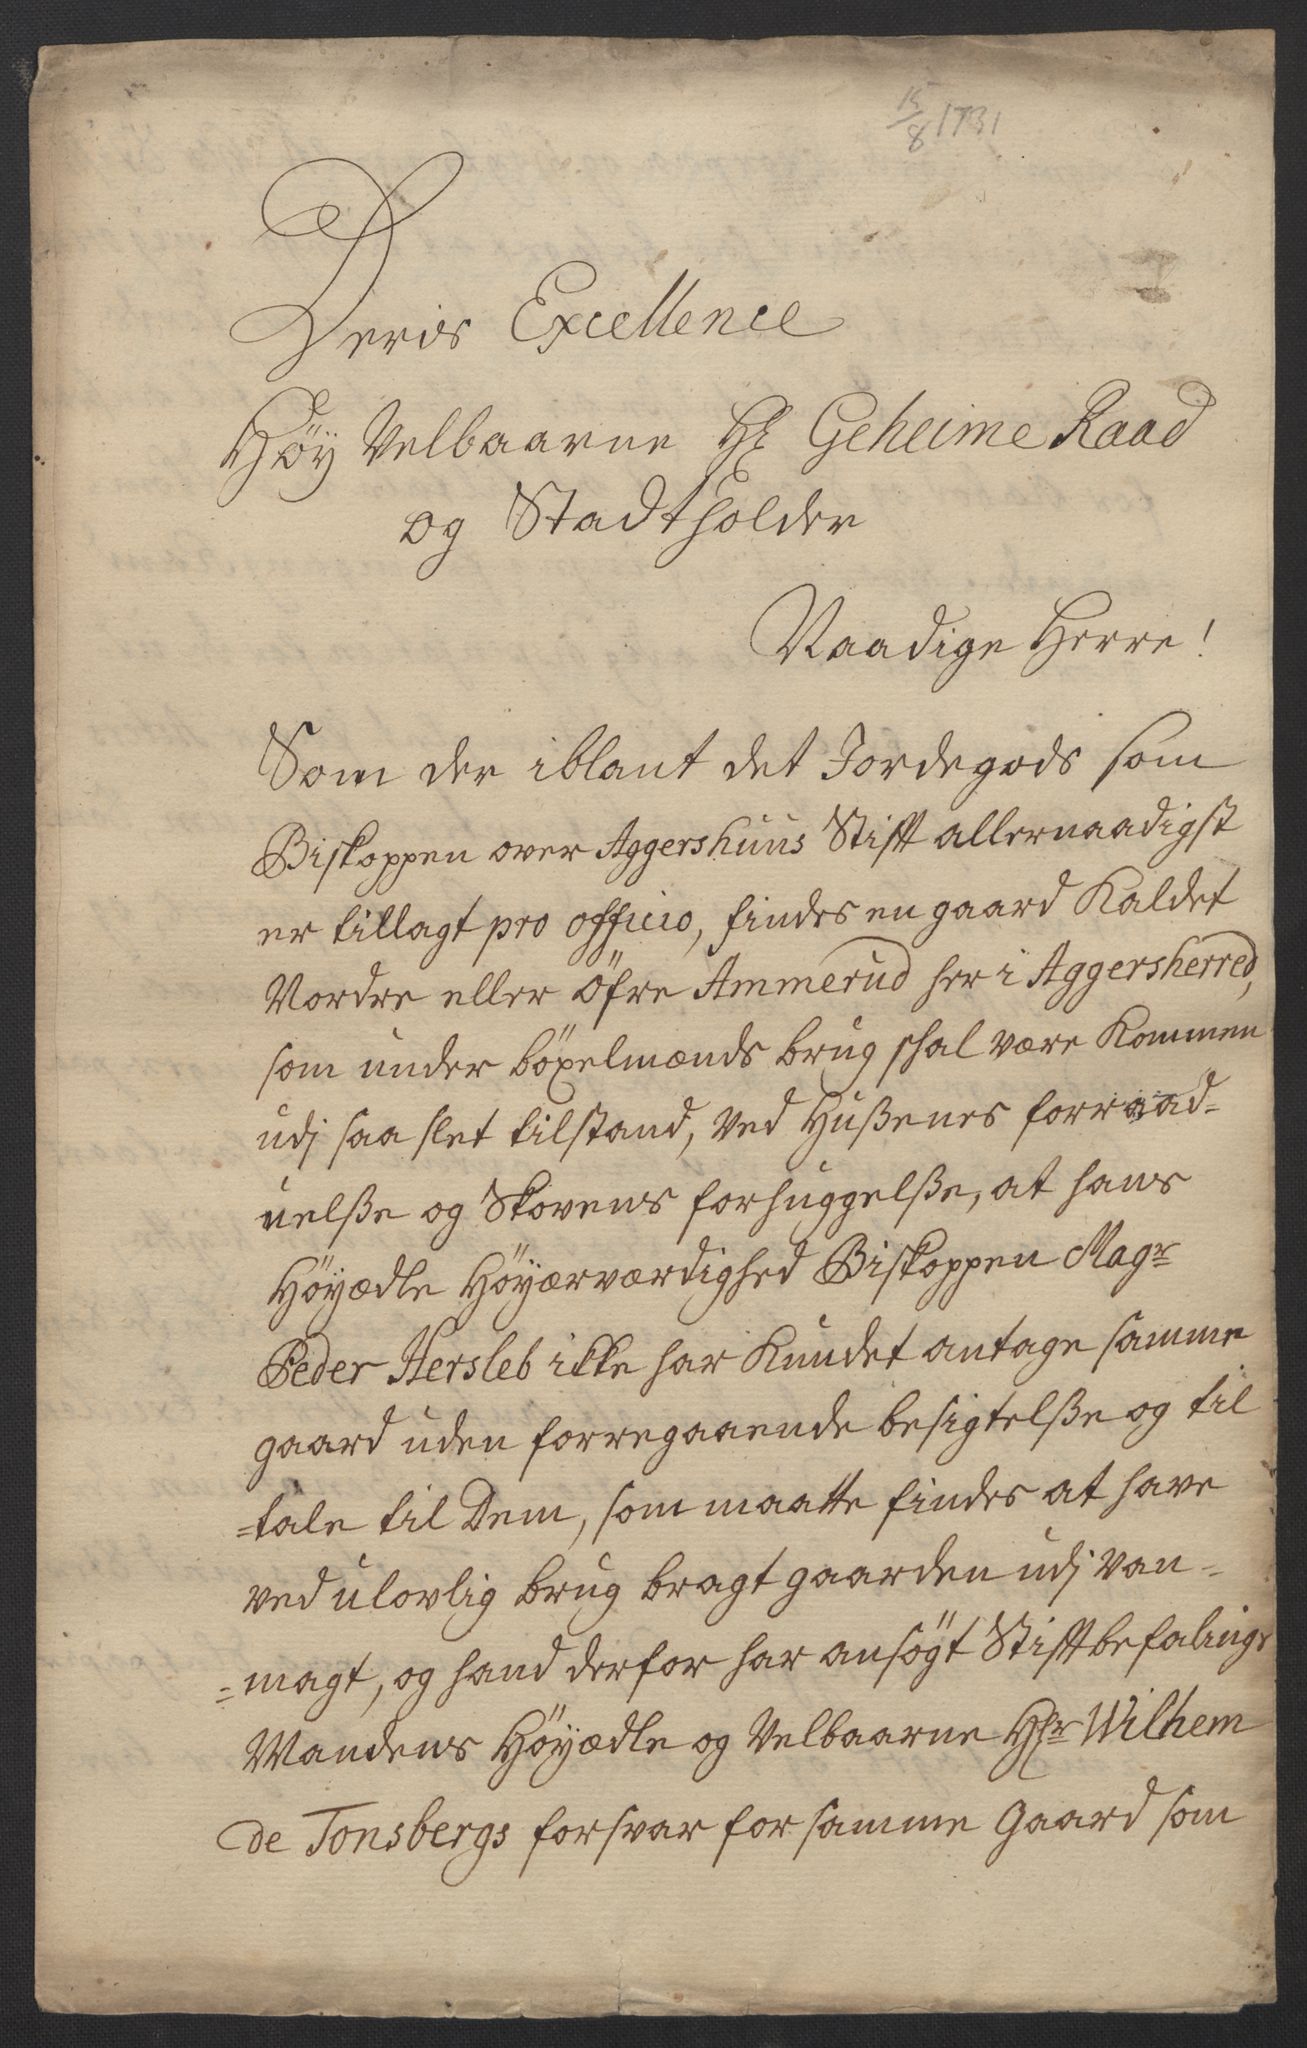 15/8 1731
Deris Excellence
Höy Velbaarne Hr Geheime Raad
og Stadtholder
Naadige Herre!
Som der iblant det Jordegods som
Biskoppen over Aggershuus Stifft allernaadigst
er tillagt pro officio, findes en gaard Kaldet
Nordre eller Öfre Ammerud her i Aggersherred,
som under böxelmænds brug skal være Kommen
udj saa slet tilstand, ved Hußenes forraad-
nelße og Skovens forhuggelße, at hans
Höyædle Höyærværdighed Biskoppen Magr
Peder Hersleb ikke har Kundet antage samme
gaard uden forregaaende besigtelße og til
=tale til Dem, som maatte findes at have
ved ulovlig brug bragt gaarden udj van-
=magt, og hand derfor har ansögt Stifftbefalings
Mandens Höyædle og Velbaarne Hr Wilhem
de Tonsbergs forsvar for samme Gaard som